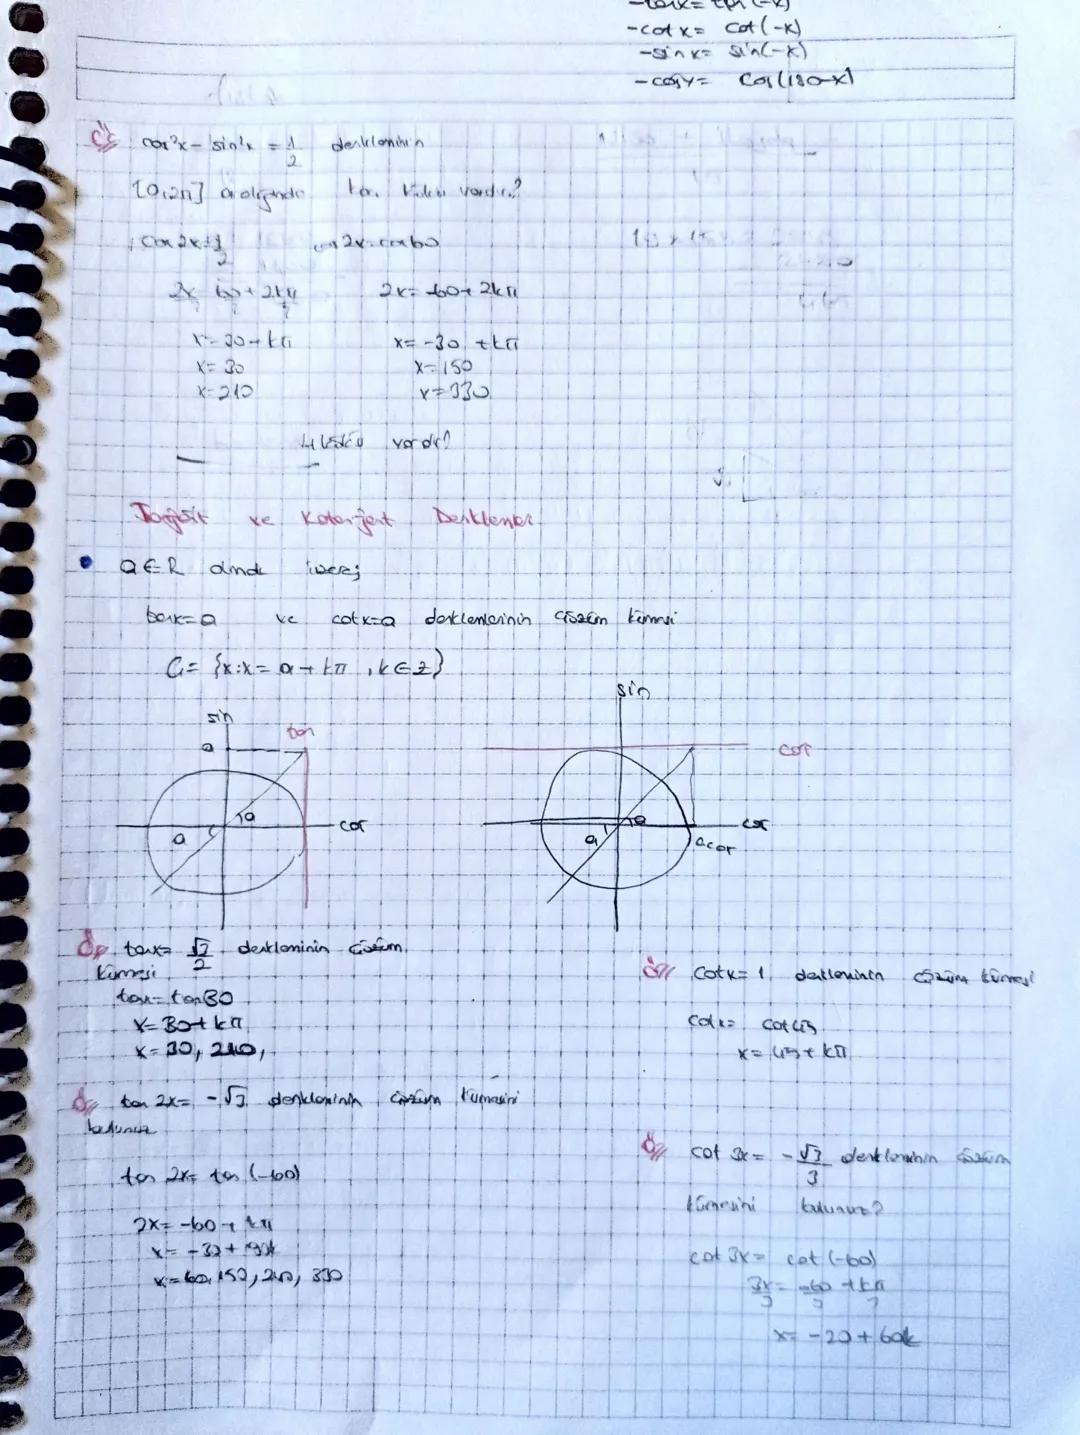 -tanx= tan(-x)
-cotx= cot(-x)
-sinx= sin(-x)
-cosx= cos(180-x)
Ör cos²x - sin²x = 1/2 denkleminin
[0,2π] aralığında kaç kökü vardır?
cos2x=1/2 cos2x=cos60
2x=60+2kπ 2x=-60+2kπ
x=30+kπ x=-30+kπ
x=30 x=150
x=210 x=330
4 kökü vardır
Tanjant ve Kotanjant Denklemler
• a∈R olmak üzere;
tanx=a ve cotx=a denklemlerinin çözüm kümesi
Ç= {x:x= α+kπ ,k∈Z}
sin
tan
a
α
cos
α
sin
cot
α
cos
α
Ör tanx= √3/2 denkleminin çözüm
kümesi
tanx=tan30
x=30+kπ
x=30, 210,
Ör cotx=1 denkleminin çözüm kümesi
cotx= cot45
x=45+kπ
Ör tan 2x= -√3 denkleminin çözüm kümesini
bulunuz
tan 2x= tan(-60)
2x=-60+kπ
x=-30+90k
x=60,150,240,330
Ör cot 3x= -√3/3 denkleminin çözüm
kümesini bulunuz?
cot 3x= cot(-60)
3x/3= -60/3 +kπ/3
x= -20+60k